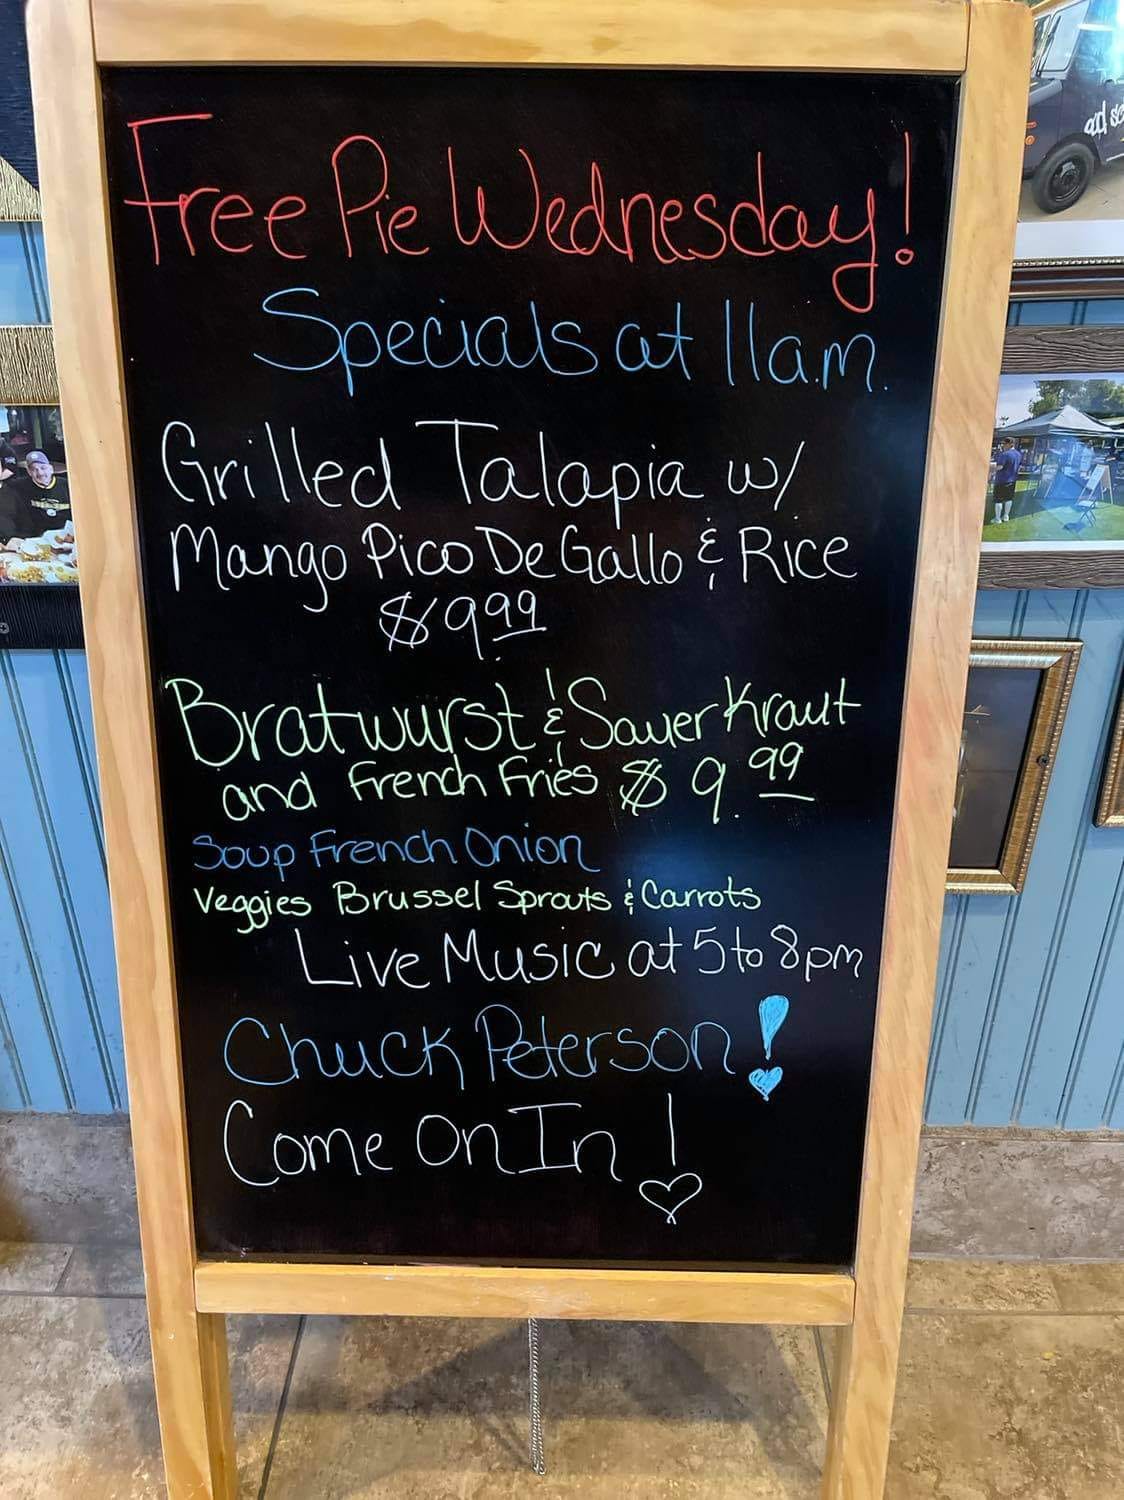 Free Pie Wednesday!
Specials at 11a.m.
Grilled Talapia w/
Mango Pico De Gallo & Rice
$9.99
Bratwurst & Sauer Kraut
and French Fries $9.99
Soup French Onion
Veggies Brussel Sprouts & Carrots
Live Music at 5 to 8pm
Chuck Peterson!
Come On In!